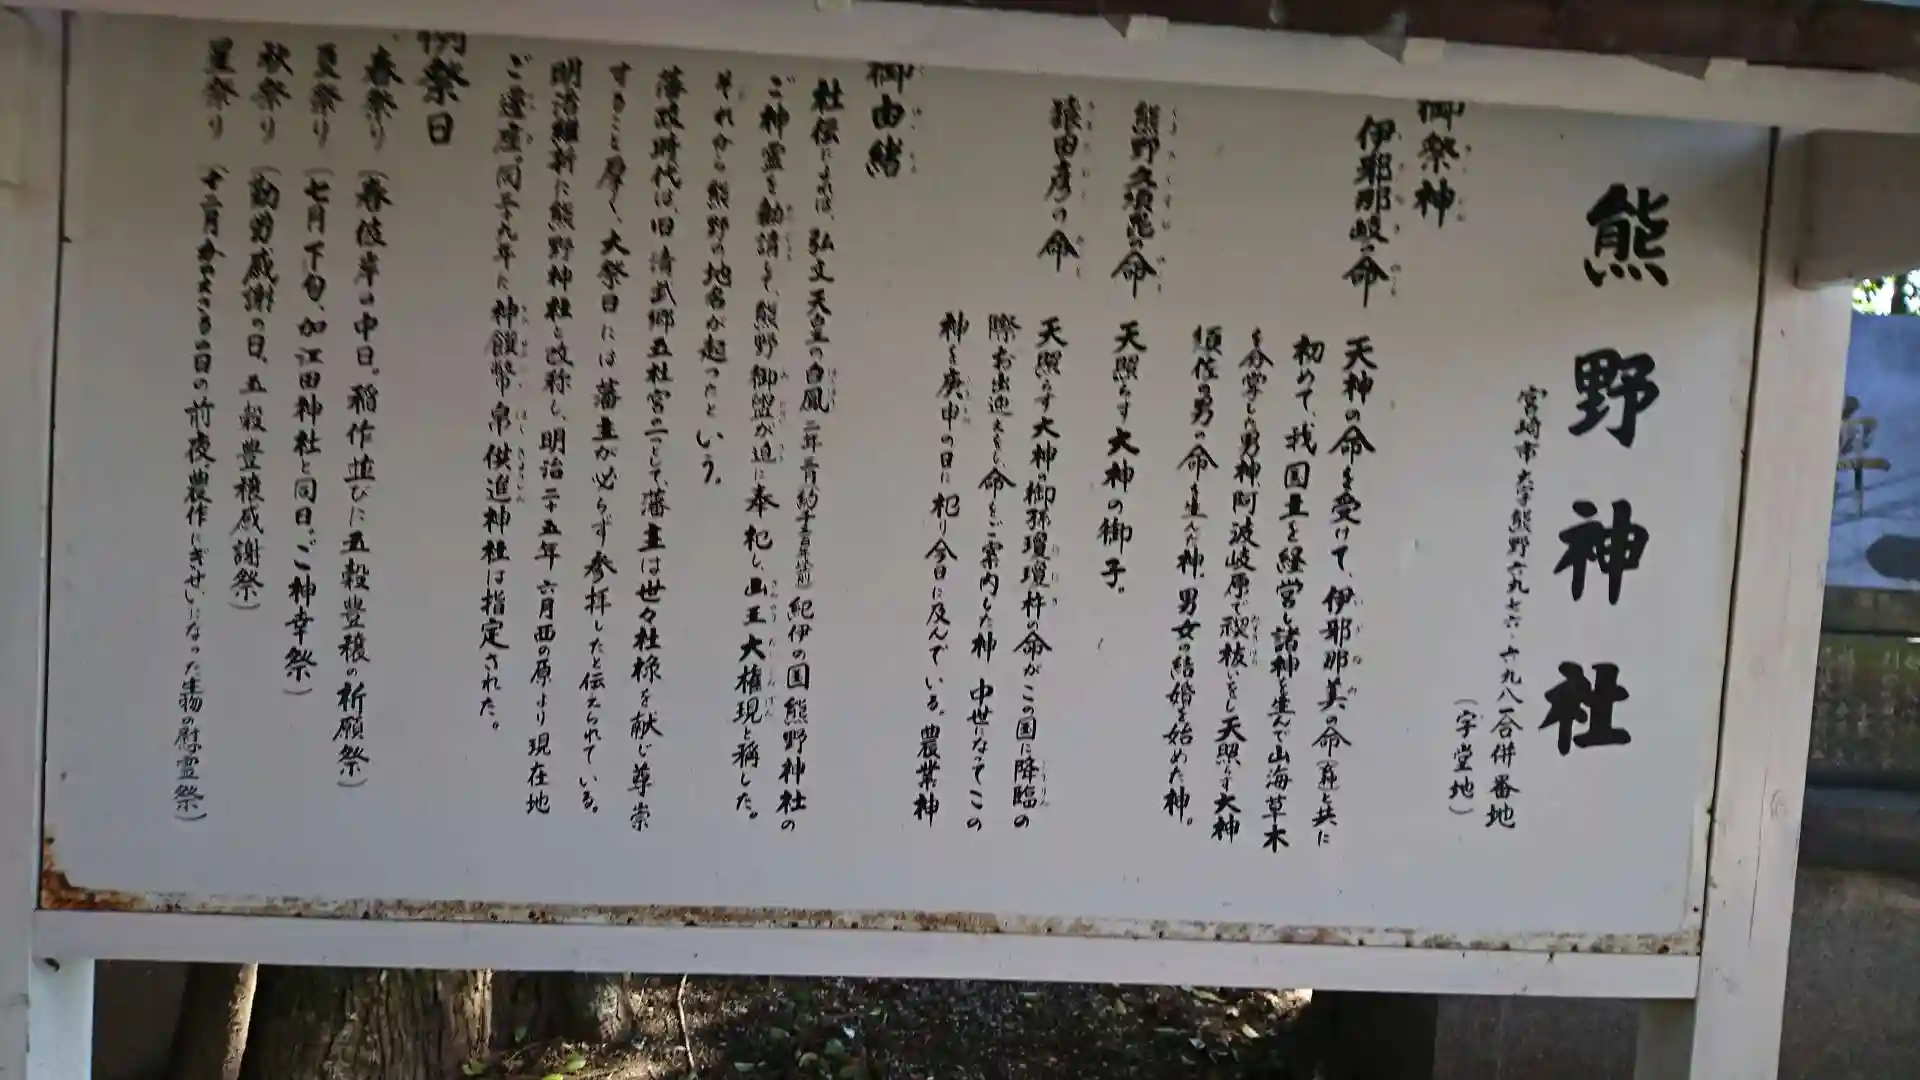 熊野神社
宮崎市大字熊野六九七六・六九八一合併番地
(字堂地)
御祭神
伊耶那岐の命
天神の命を受けて、伊耶那美の命(妹)と共に
初めて、我国土を経営し諸神を生んで山海草木
を分掌した男神阿波岐原で禊祓いをし天照らす大神
須佐の男の命を生んだ神。男女の結婚を始めた神。
熊野久須毘の命
天照らす大神の御子。
猿田彦の命
天照らす大神の御孫瓊瓊杵の命がこの国に降臨の
際お出迎えをし、命をご案内した神 中世になってこの
神を庚申の日に祀り今日に及んでいる。農業神
御由緒
社伝によれば、弘文天皇の白鳳二年三月(約千三百年位前)紀伊の国熊野神社の
ご神霊を勧請して、熊野御盥が迫に奉祀し、山王大権現と称した。
それから熊野の地名が起ったという。
藩政時代は、旧清武郷五社宮の一として、藩主は世々社禄を献じ尊崇
すること厚く、大祭日には藩主が必らず参拝したと伝えられている。
明治維新に熊野神社と改称し、明治二十五年六月西の原より現在地
ご遷座。同三十九年に神饌幣帛供進神社に指定された。
例祭日
春祭り(春彼岸の中日。稲作並びに五穀豊穣の祈願祭)
夏祭り(七月下旬、加江田神社と同日。ご神幸祭)
秋祭り(勤労感謝の日、五穀豊穣感謝祭)
星祭り(十二月かのえさるの日の前夜、農作にぎせいになった生物の慰霊祭)